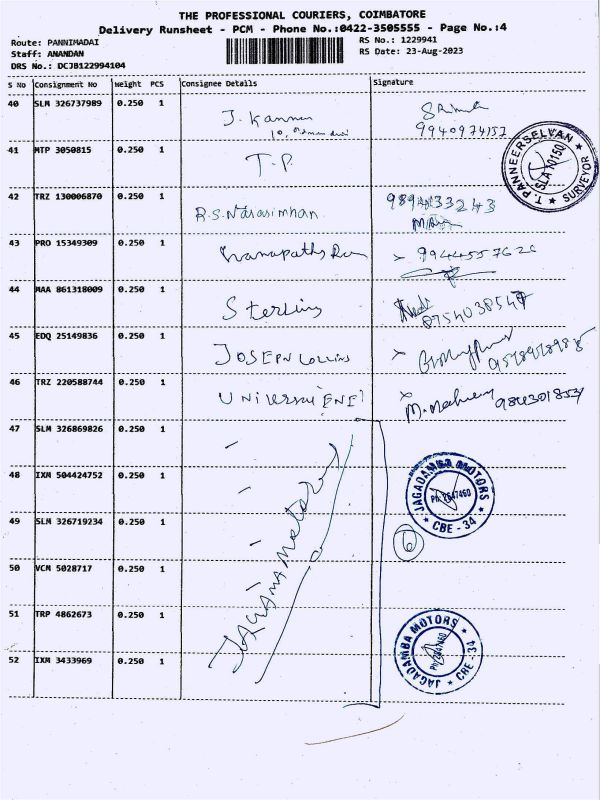 THE PROFESSIONAL COURIERS, COIMBATORE
Delivery Runsheet - PCM - Phone No.:0422-3505555 - Page No.:4
Route: PANNIMADAI
RS No.: 1229941
Staff: ANANDAN
RS Date: 23-Aug-2023
DRS No.: DCJB122994104
S No Consignment No Weight PCS Consignee Details Signature
40 SLM 326737989 0.250 1 J. Kannan
9940974157
41 MTP 3050815 0.250 1 T.P.
T. PANNEERSELVAN
SLA 10150
★ SURVEYOR ★
42 TRZ 130006870 0.250 1 R.S. Narasimhan 9894433243
43 PRO 15349309 0.250 1
44 MAA 861318009 0.250 1 Sterling
8754038547
45 EDQ 25149836 0.250 1 JOSEPH Collins
46 TRZ 220588744 0.250 1 Universal ENE
47 SLM 326869826 0.250 1 -
48 IXM 504424752 0.250 1 -
JAGADAMBA MOTORS
PH: 2647460
★ CBE - 34 ★
49 SLM 326719234 0.250 1 -
6
50 VCM 5028717 0.250 1 -
51 TRP 4862673 0.250 1 -
JAGADAMBA MOTORS
PH: 2647460
★ CBE - 34 ★
52 IXM 3433969 0.250 1